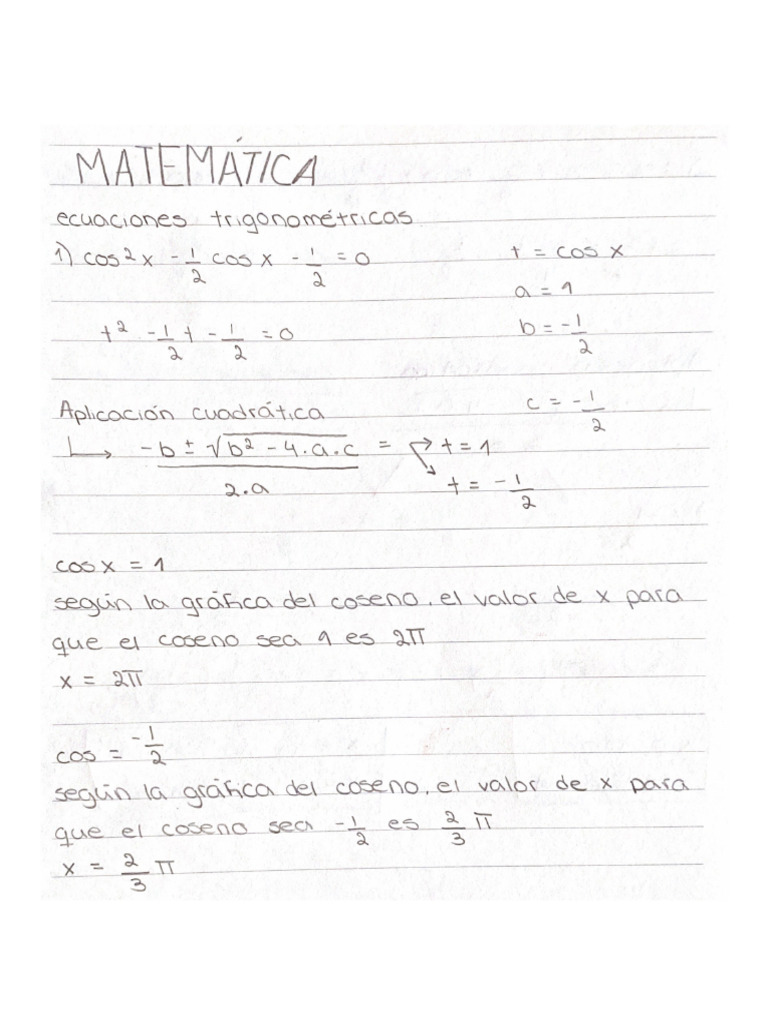 MATEMÁTICA
ecuaciones trigonométricas
1) cos²x - 1/2 cos x - 1/2 = 0
t = cos x
a = 1
t² - 1/2 t - 1/2 = 0
b = -1/2
c = -1/2
Aplicación cuadrática
↳ (-b ± √(b² - 4.a.c))/(2.a) = t = 1
t = -1/2
cos x = 1
según la gráfica del coseno, el valor de x para
que el coseno sea 1 es 2π
x = 2π
cos = -1/2
según la gráfica del coseno, el valor de x para
que el coseno sea -1/2 es 2/3 π
x = 2/3 π